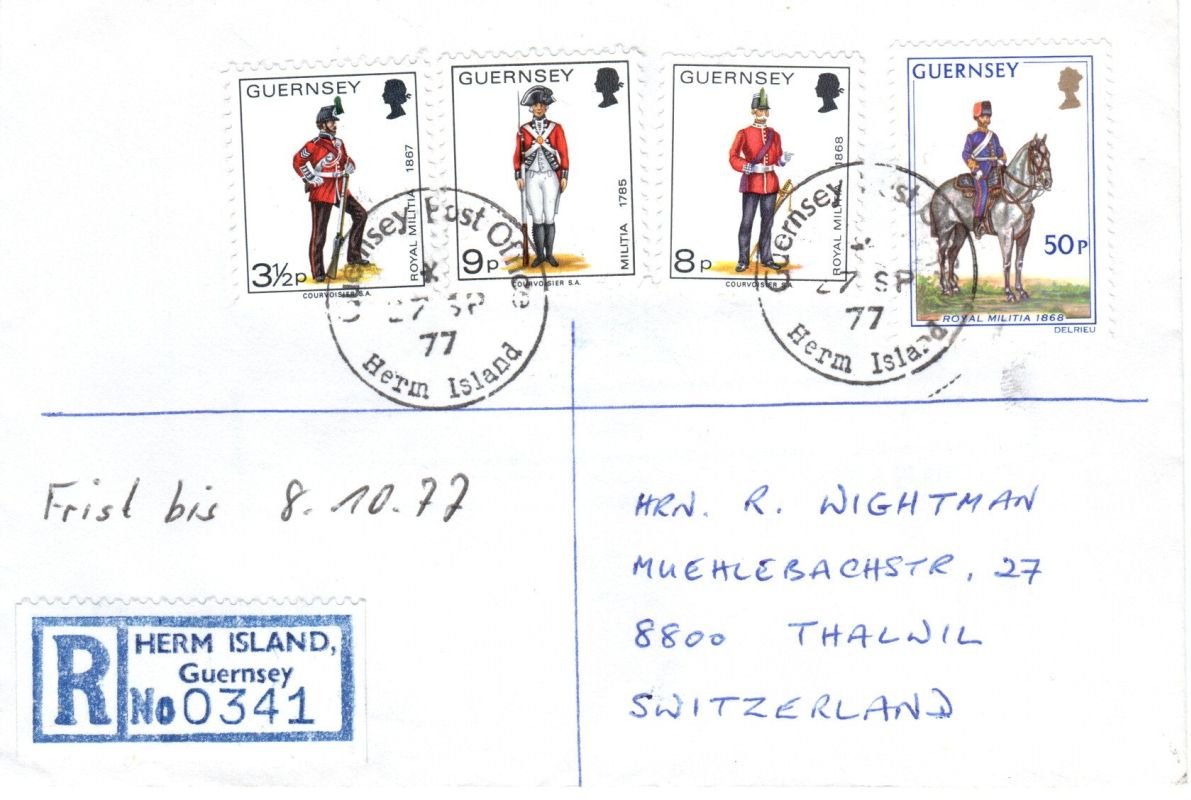 GUERNSEY
ROYAL MILITIA 1867
3½P
COURVOISIER S.A.
GUERNSEY
MILITIA 1785
9P
COURVOISIER S.A.
GUERNSEY
ROYAL MILITIA 1868
8P
COURVOISIER S.A.
GUERNSEY
50P
ROYAL MILITIA 1868
DELRIEU
Guernsey Post Office
27 SP
77
Herm Island
Guernsey Post
27 SP
77
Herm Island
Frist bis 8.10.77
HRN. R. WIGHTMAN
MUEHLEBACHSTR, 27
8800 THALWIL
SWITZERLAND
R
HERM ISLAND,
Guernsey
No 0341